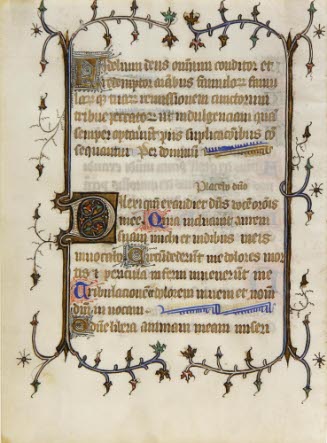 Fidelium deus omnium conditor et
redemptor aĩabus famulorum famu
larumq; tuarum remissionem cunctorum
tribue peccatorum ut indulgenciam quã
semper optauerunt piis suplicationibus cõ
sequantur Per dominum
Placebo dño
Dilexi qm̃ exaudiet dñs vocem oracõnis
mee. Quia inclinauit aurem
suam michi et in diebus meis
inuocabo Circumdederunt me dolores mor
tis et pericula inferni inuenerunt me
Tribulacionẽ et dolorem inueni et nom̃
dñi inuocaui
O dñe libera animam meam miseri